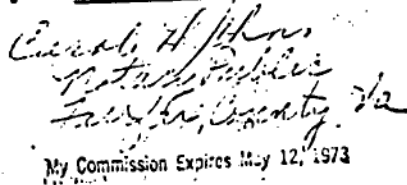 Carol H John
Notary Public
Fairfax County Va
My Commission Expires May 12, 1973